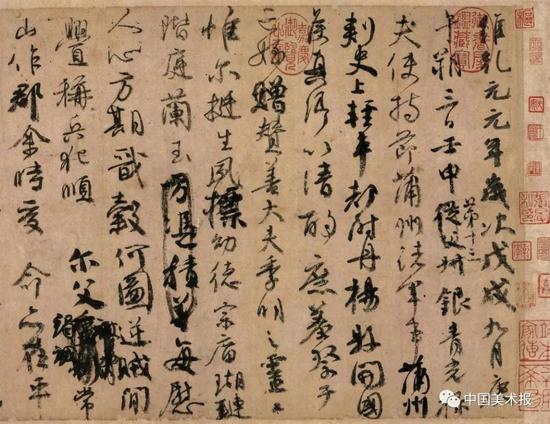 維乾元元年歲次戊戌九月庚
午朔三日壬申從父第十三叔銀青光祿
夫使持節蒲州諸軍事蒲州
刺史上輕車都尉丹楊縣開國
侯真卿以清酌庶羞祭于
亡姪贈贊善大夫季明之靈曰
惟爾挺生夙標幼德宗廟瑚璉
階庭蘭玉方憑積善每慰
人心方期戩穀何圖逆賊間
釁稱兵犯順爾父竭誠常
山作郡余時受命亦在平
中国美术报